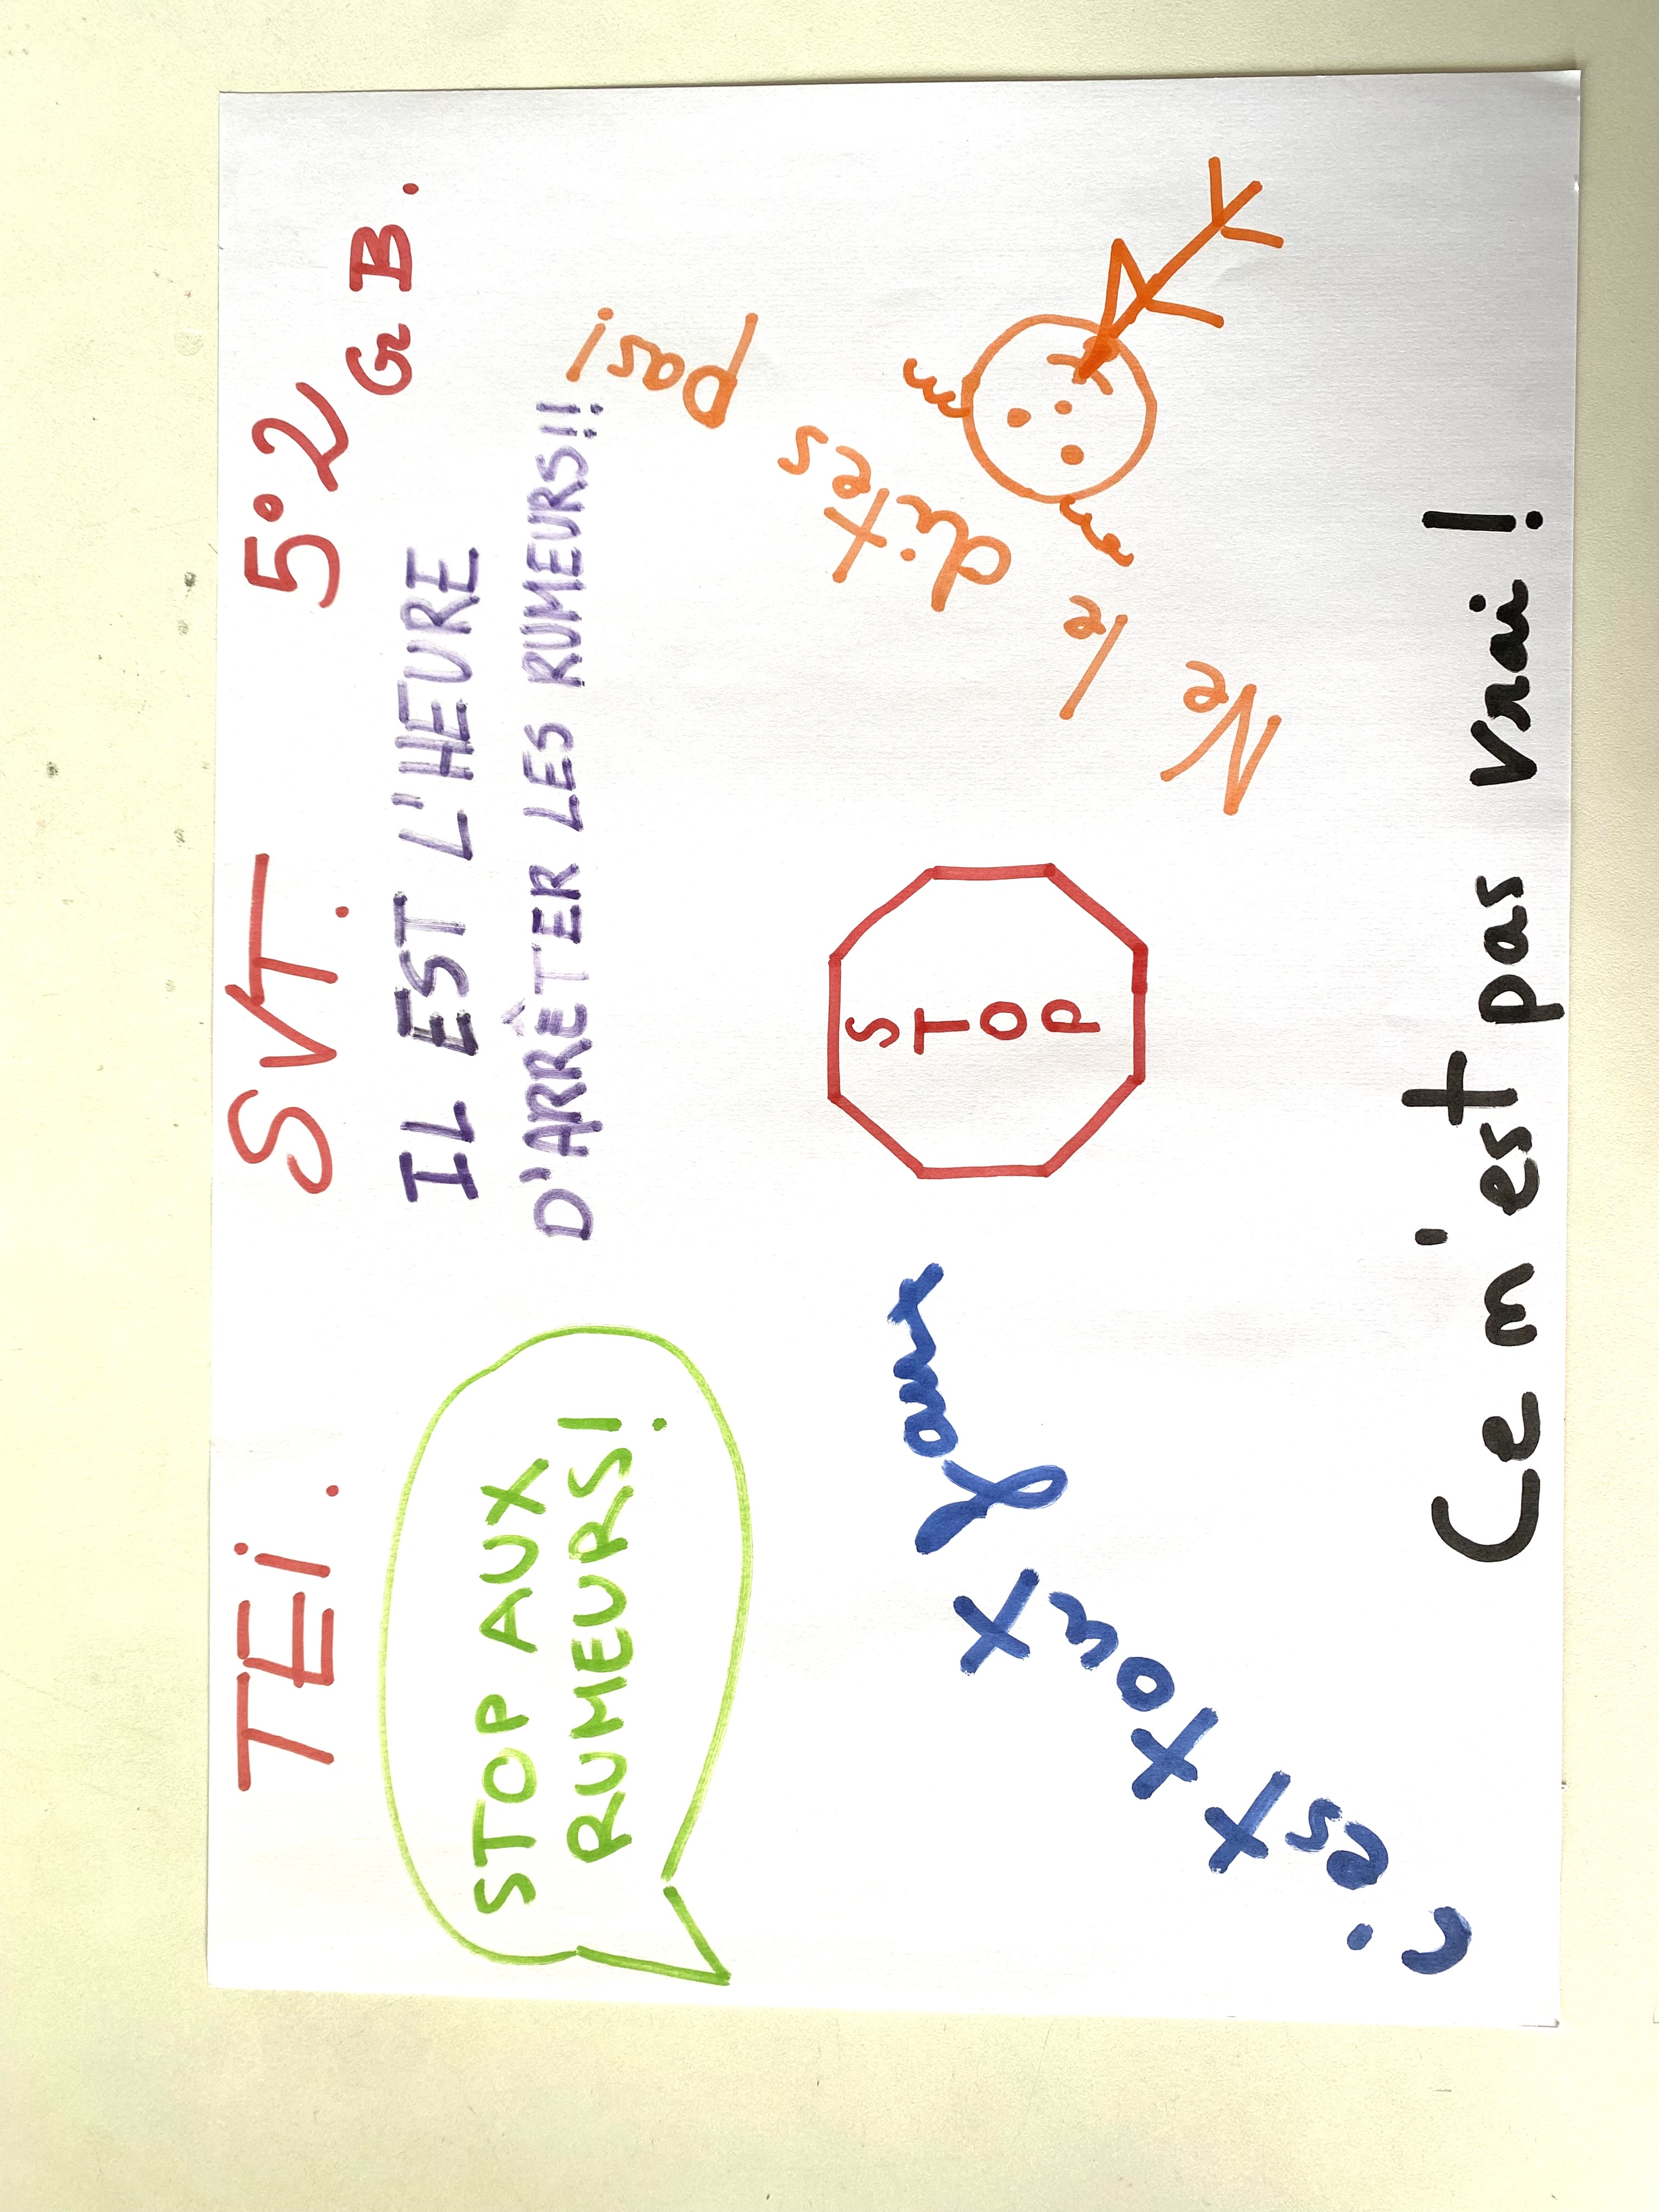 TEi. SVT. 5°2
G B.
STOP AUX
RUMEURS!
IL EST L'HEURE
D'ARRÊTER LES RUMEURS!!
c'est tout faux
S
T
O
P
Ne le dites pas!
Ce n'est pas vrai !